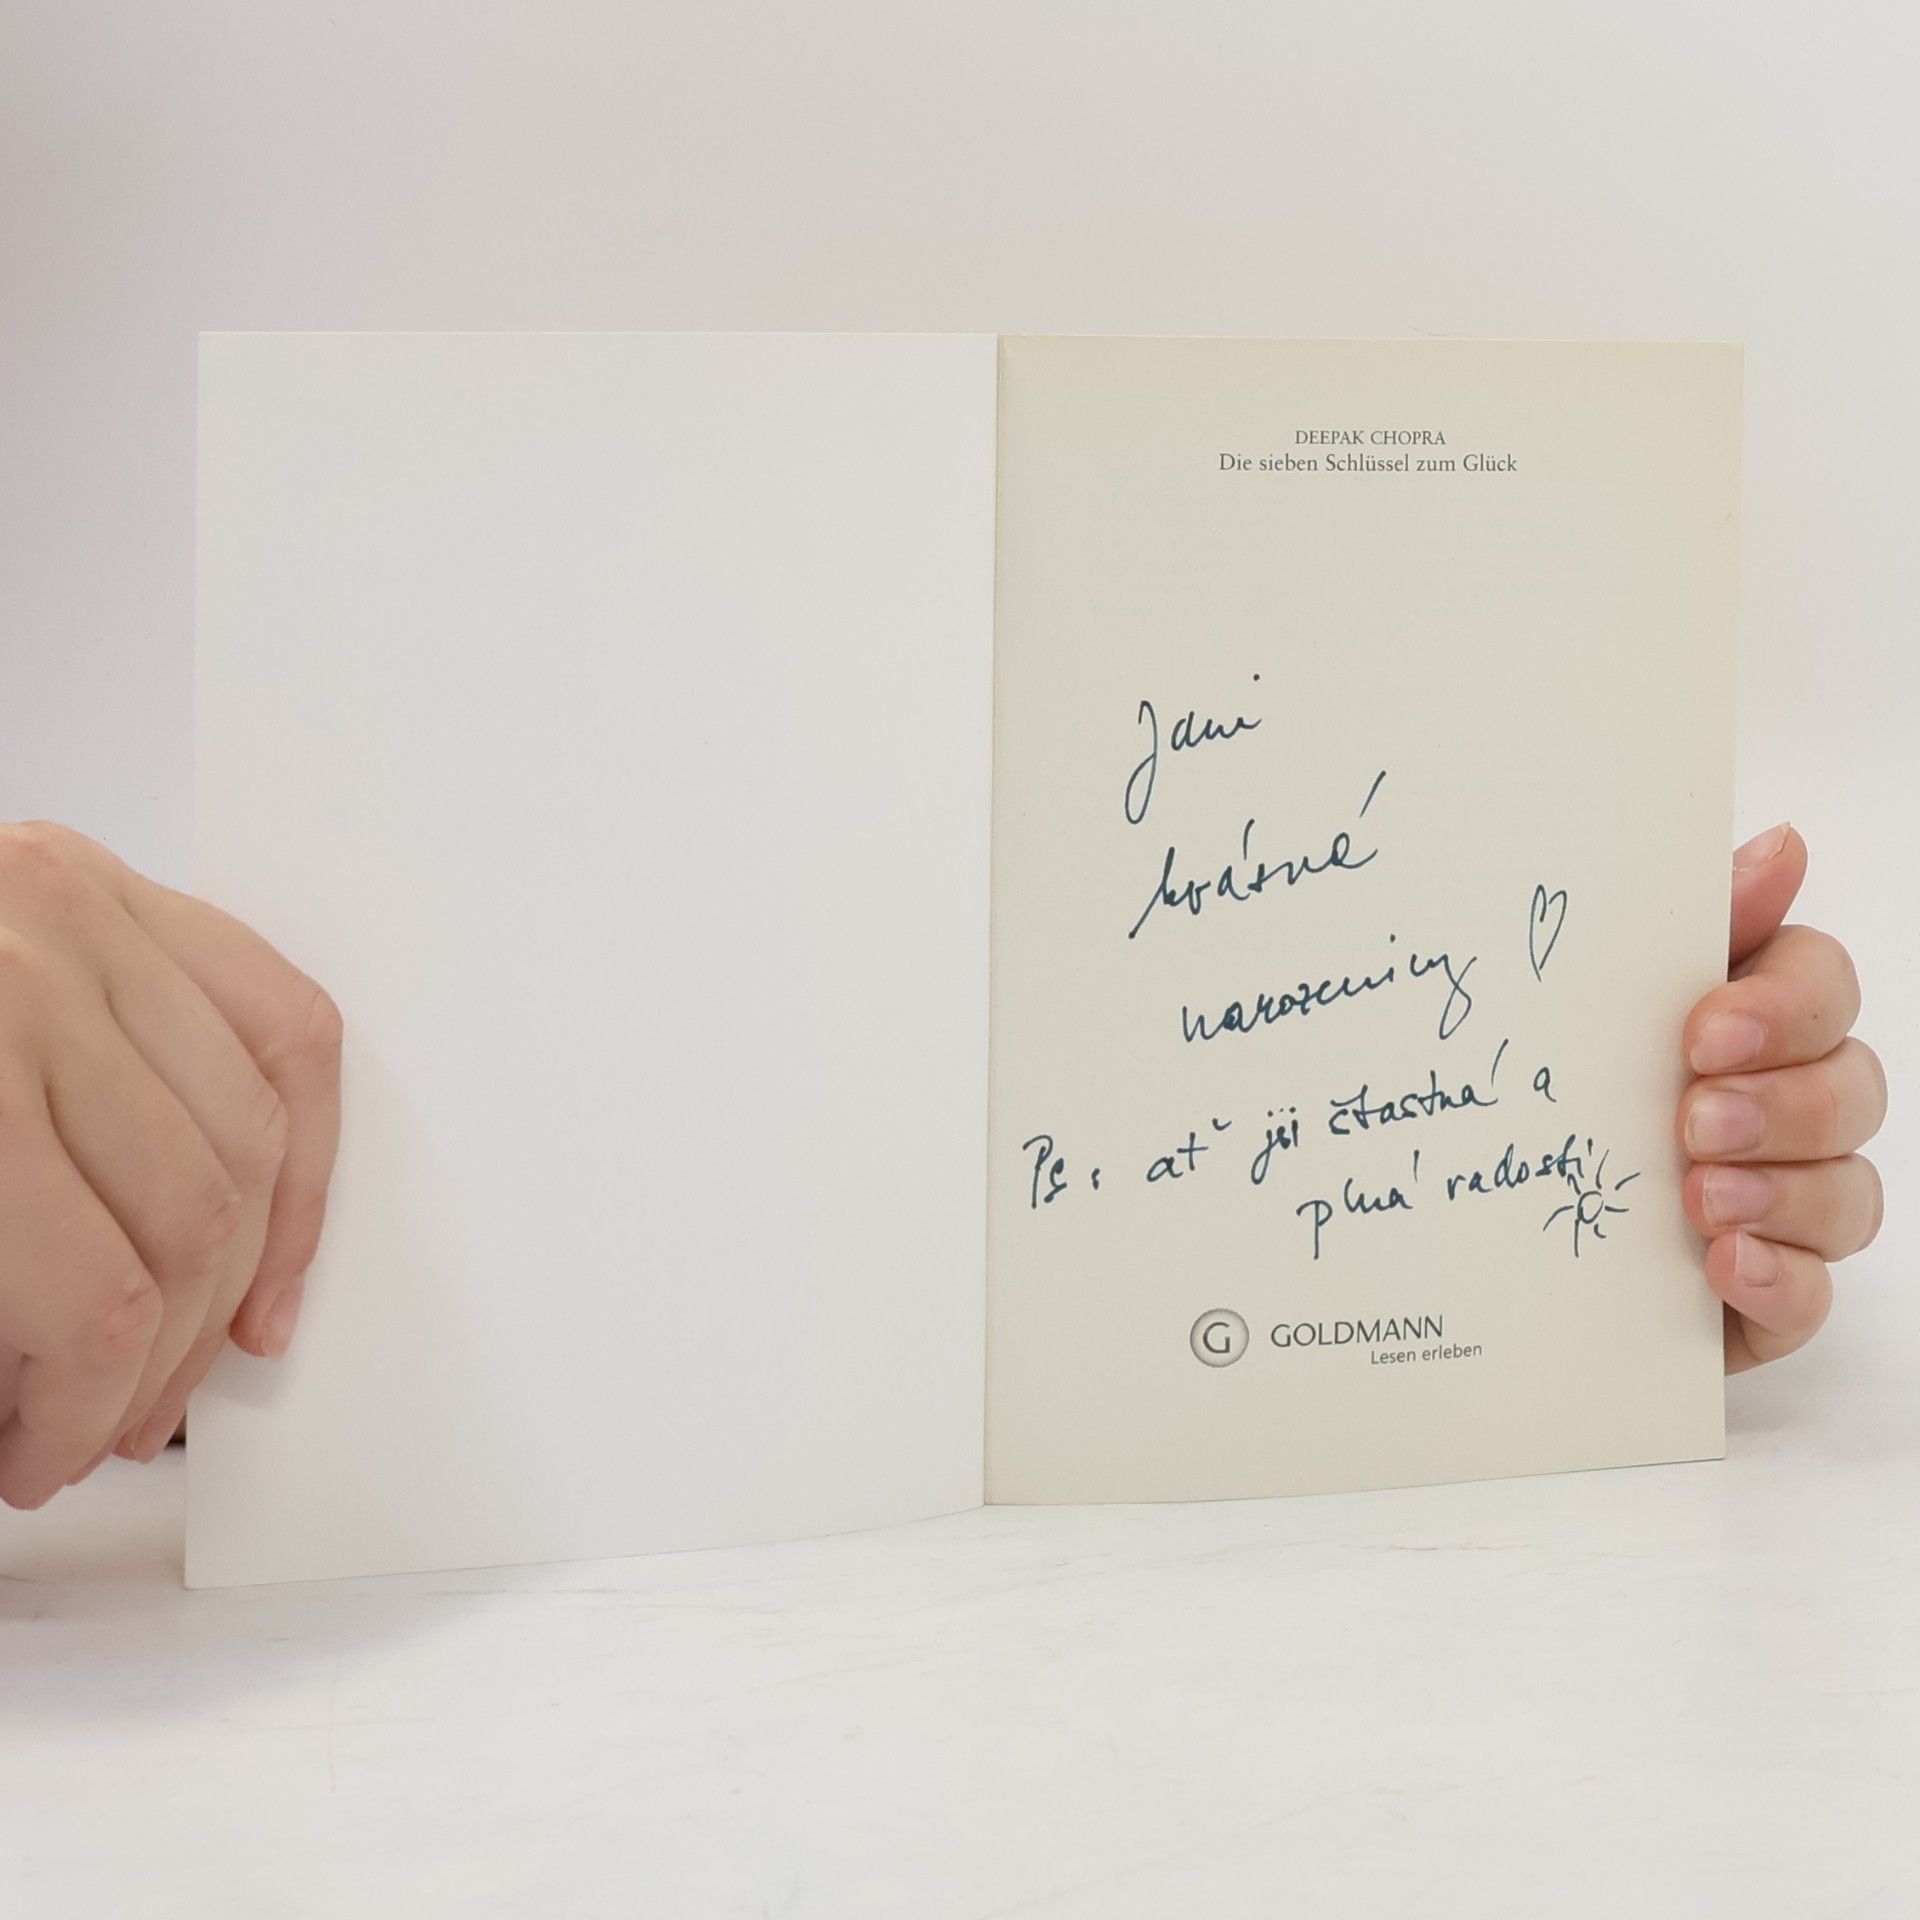 DEEPAK CHOPRA
Die sieben Schlüssel zum Glück
Jani
krásné
narozeniny ♡
Ps: ať jsi čtastná a
plná radosti
G GOLDMANN
Lesen erleben